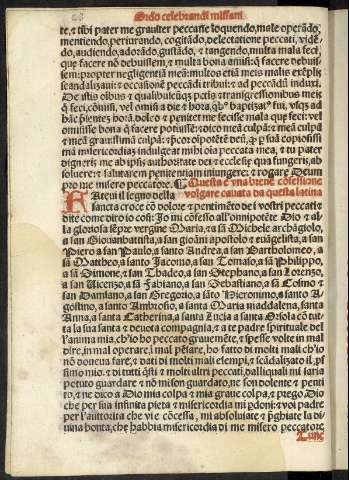 Ordo celebrandi missam
te, ⁊ tibi pater me grauiter peccasse loquendo, male operãdo,
mentiendo, periurando, cogitãdo, delectatione peccati, vidẽ-
do, audiendo, adorãdo, gustãdo, ⁊ tangendo, multa mala feci,
que facere nõ debuissem, ⁊ multa bona amisi: q̃ facere debuis-
sem: propter negligentiã meã: multos etiã meis malis exẽplis
scandalizaui: ⁊ occasionẽ peccãdi tribui: ⁊ ad peccãdũ induxi.
De istis oĩbus ⁊ qualibuscũqz pctis ⁊ transgressionibus meis
q̃ feci, cõmisi, vel omisi a die ⁊ hora, qb° baptizat° fui, vsqz ad
hãc pñtẽ horã: doleo ⁊ penitet me fecisse mala que feci: vel
omisisse bona q̃ facere potuissẽ: ⁊ dico meã culpã ⁊ meã culpã
⁊ meã grauissimã culpã: ⁊ pcor oĩpotẽtẽ deũ, q p suã copiosissi
mã misericordiaz indulgeat mihi oĩa peccata mea, ⁊ tu pater
digneris me ab ipsis auctoritate dei ⁊ ecclesie qua fungeris, ab
soluere: ⁊ salutarem penitentiam iniungere: ⁊ rogare Deum
pro me misero peccatore. ¶ Questa e vna breue cõfessione
FAteui il segno della volgare cauata da questa latina
sancta croce cõ dolore ⁊ pentimẽto de i vostri peccati: ⁊
dite come diro io cosi: Jo mi cõfesso all'onnipotẽte Dio ⁊ al-
la gloriosa sẽpre vergine Maria, ⁊ a sã Michele archãgiolo,
a san Giouanbattista, a san gioãni apostolo ⁊ euãgelista, a san
Piero a san Paulo, a santo Andrea, a san Bartholomeo, a
sã Mattheo, a santo Jacono, a san Tomaso, a sã Philippo,
a sã Simone, ⁊ san Thadeo, a san Stephano, a san Lorenzo,
a san Vicenzo, a sã Fabiano, a san Sebastiano, a sã Cosmo ⁊
san Damiano, a san Gregorio, a sãto Hieronimo, a santo A-
gostino, a santo Ambrosio, a santa Maria maddalena, santa
Anna, a santa Catherina, a santa Lucia a santa Orsola cõ tut-
ta la sua santa ⁊ deuota compagnia, ⁊ a te padre spirituale del
l'anima mia, ch'io ho peccato grauemẽte, ⁊ spesse volte in mal
dire, in mal operare, ⁊ mal pẽsare, ho fatto di molti mali ch'io
nõ doueua fare, ⁊ dati di molti mali esempi, ⁊ scãdalizato il pr̃-
simo mio. ⁊ di tutti q̃sti ⁊ molti altri peccati, dalli quali mi saria
potuto guardare ⁊ nõ mi son guardato, ne son dolente ⁊ penti
to, ⁊ ne dico a Dio mia colpa ⁊ mia graue colpa, ⁊ priego Dio
che per sua infinita pieta ⁊ misericordia mi pdoni: ⁊ voi padre
per l'auttorita che vi e cõcessa, mi absoluiate ⁊ pghiate la di-
uina bonta, che habbia misericordia di me misero peccatore.
Tunc